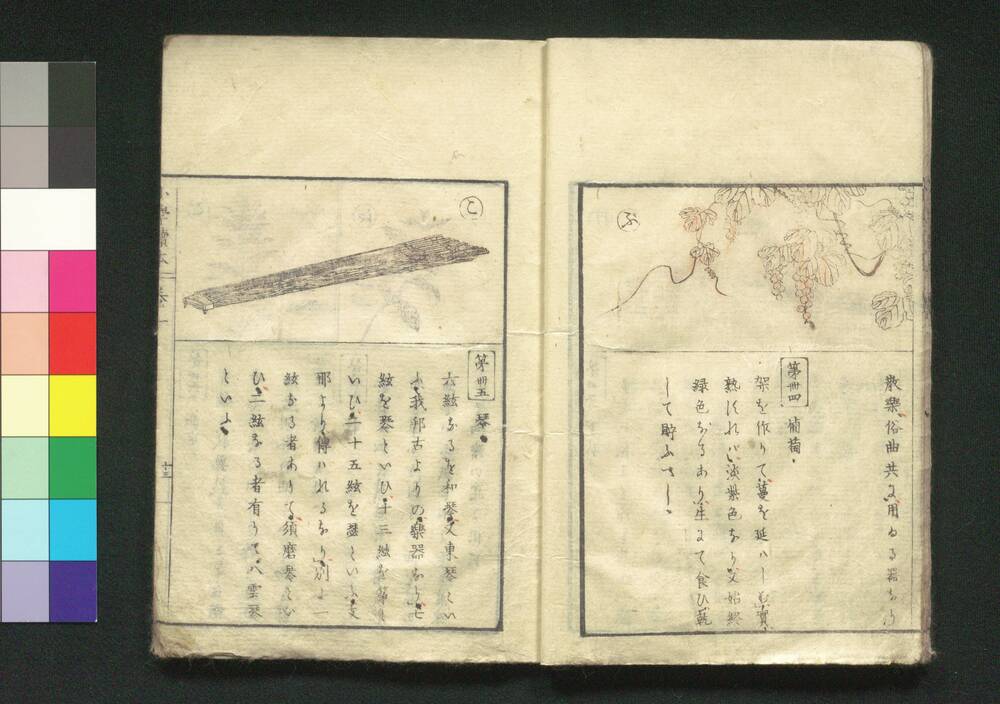 ぶ
散樂俗曲共に用ゐる器なり
第卌四 葡萄
架を作りて蔓を延ハしむ實
熟すれバ淡紫色なり又始終
緑色なるあり生にて食ひ乾
して貯ふべし
こ
第卌五 琴
六絃なるを和琴又東琴とい
ふ我邦古よりの樂器なり七
絃を琴といひ十三絃を箏と
いひ二十五絃を瑟といふ支
那より傳ハれるなり別に一
絃なる者ありて須磨琴とい
ひ二絃なる者有りて八雲琴
といふ
十三